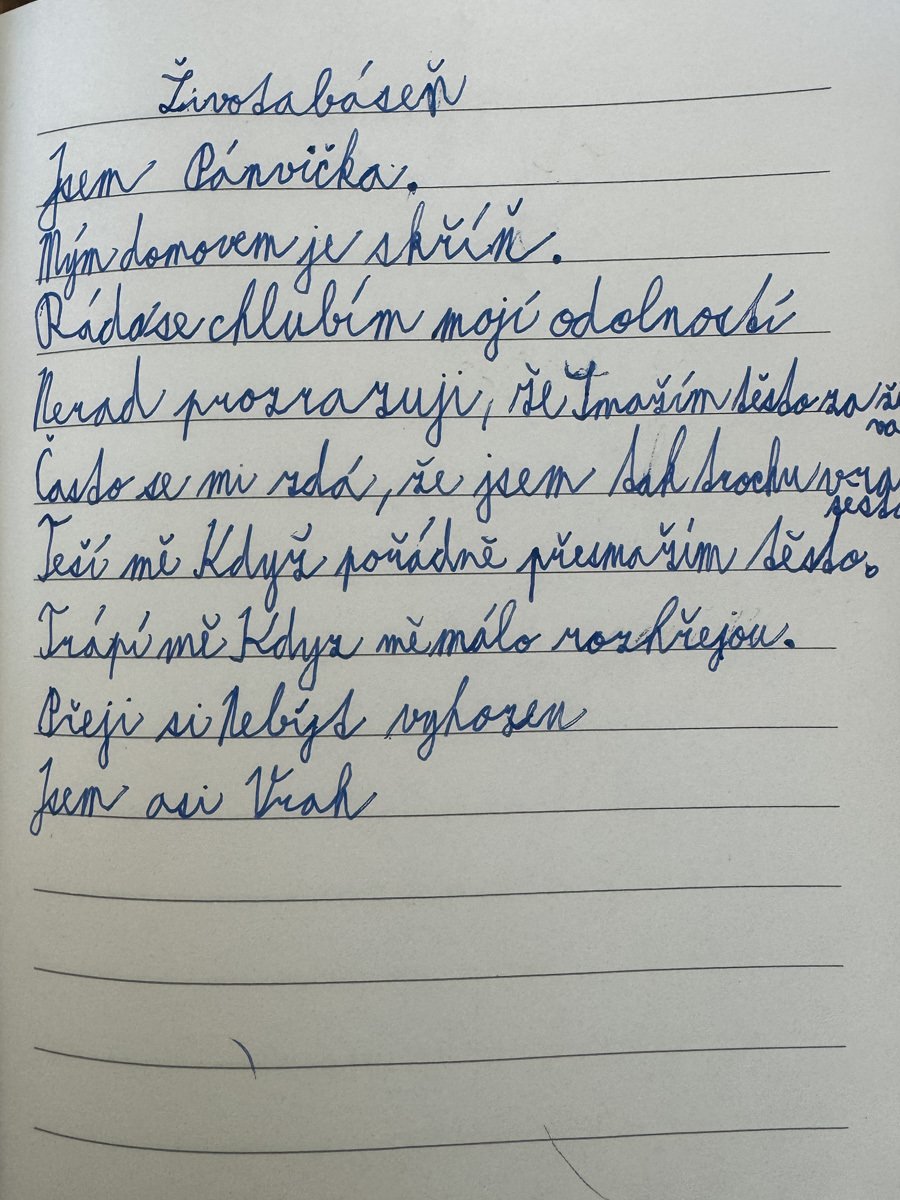 Životabáseň
Jsem Pánvička.
Mým domovem je skříň.
Ráda se chlubím mojí odolností
Nerad prozrazuji, že Smažím těsto za
Často se mi zdá, že jsem tak trochu
Teší mě Když pořádně přesmažim těsto.
Trápí mě Kdyz mě málo rozhřejou.
Přeji si Nebýt vyhozen
Jsem asi Vrah